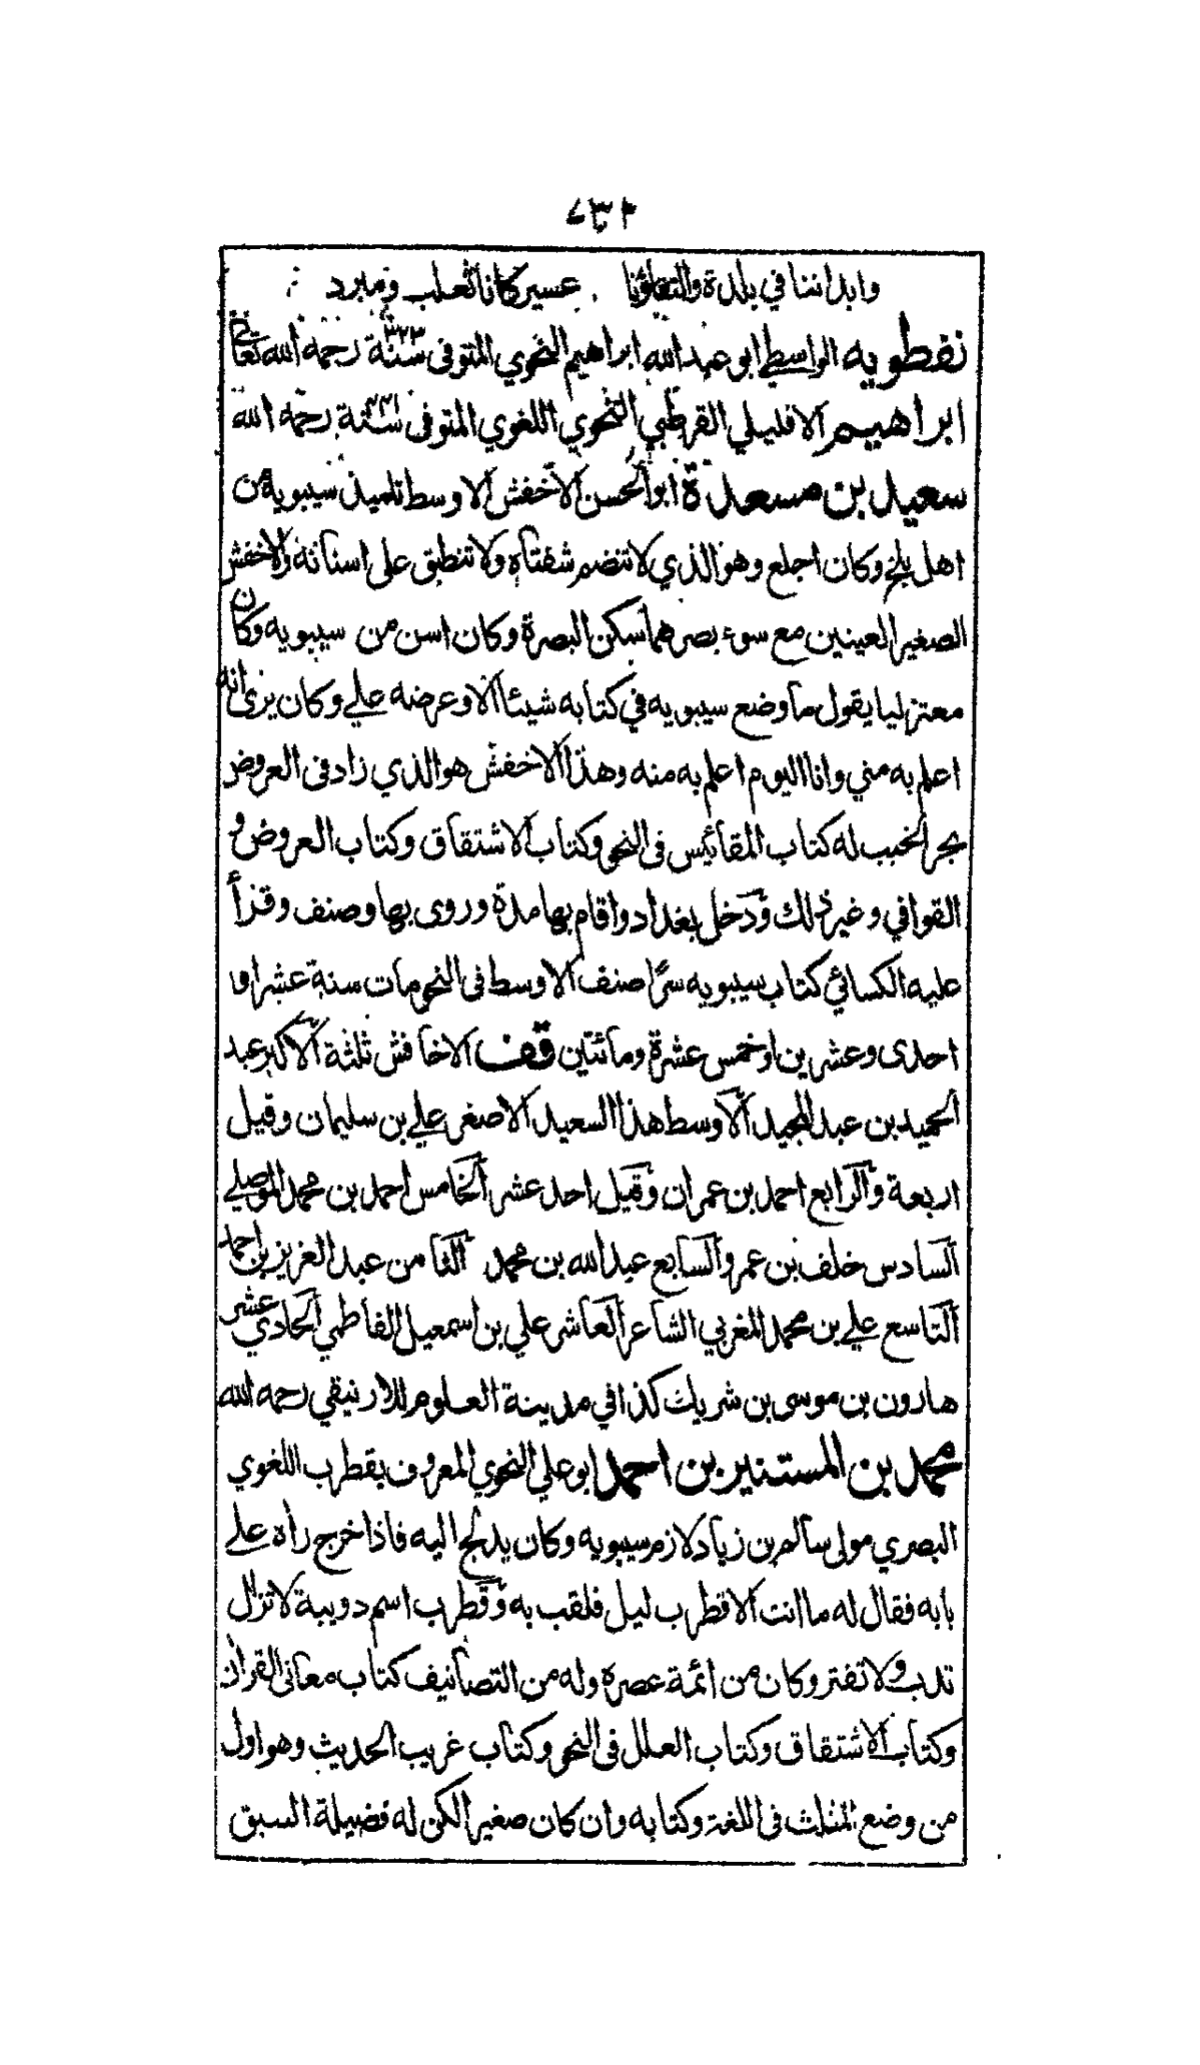 وابداننا في بلدة والتقاؤنا . عسير كانا ثعلب ومبرد
نفطويه الواسطي ابو عبد الله ابراهيم النحوي المتوفى سنة ٣٢٣ رحمه الله تعالى
ابراهيم الافليلي القرطبي النحوي اللغوي المتوفى سنة رحمه الله
سعيد بن مسعدة ابو الحسن الاخفش الاوسط تلميذ سيبويه من
اهل بلخ وكان اجلع وهو الذي لا تنضم شفتاه ولا تنطبق على اسنانه والاخفش
الصغير العينين مع سوء بصرهما سكن البصرة وكان اسن من سيبويه وكان
معتزليا يقول ما وضع سيبويه في كتابه شيئا الا وعرضه علي وكان يرى انه
اعلم به مني وانا اليوم اعلم به منه وهذا الاخفش هو الذي زاد في العروض
بحر الخبب له كتاب المقائيس في النحو وكتاب الاشتقاق وكتاب العروض و
القوافي وغير ذلك ودخل بغداد واقام بها مدة وروى بها وصنف وقرأ
عليه الكسائي كتاب سيبويه سرا صنف الاوسط في النحو مات سنة عشر او
احدى وعشرين او خمس عشرة ومائتين قف الاخافش ثلثة الاكبر عبد
الحميد بن عبد المجيد الاوسط هذا السعيد الاصغر علي بن سليمان وقيل
اربعة والرابع احمد بن عمران وقيل احد عشر الخامس احمد بن محمد الموصلي
السادس خلف بن عمرو السابع عبد الله بن محمد الثامن عبد العزيز بن احمد
التاسع علي بن محمد المغربي الشاعر العاشر علي بن اسمعيل الفاطمي الحادي عشر
هارون بن موسى بن شريك كذا في مدينة العلوم للارنيقي رحمه الله
محمد بن المستنير بن احمد ابو علي النحوي المعروف بقطرب اللغوي
البصري مولى سالم بن زياد لازم سيبويه وكان يدلج اليه فاذا خرج رأه على
بابه فقال له ما انت الا قطرب ليل فلقب به وقطرب اسم دويبة لا تزال
تدب ولا تفتر وكان من ائمة عصره وله من التصانيف كتاب معاني القران
وكتاب الاشتقاق وكتاب العلل في النحو وكتاب غريب الحديث وهو اول
من وضع المثلث في اللغة وكتابه وان كان صغيرا لكن له فضيلة السبق